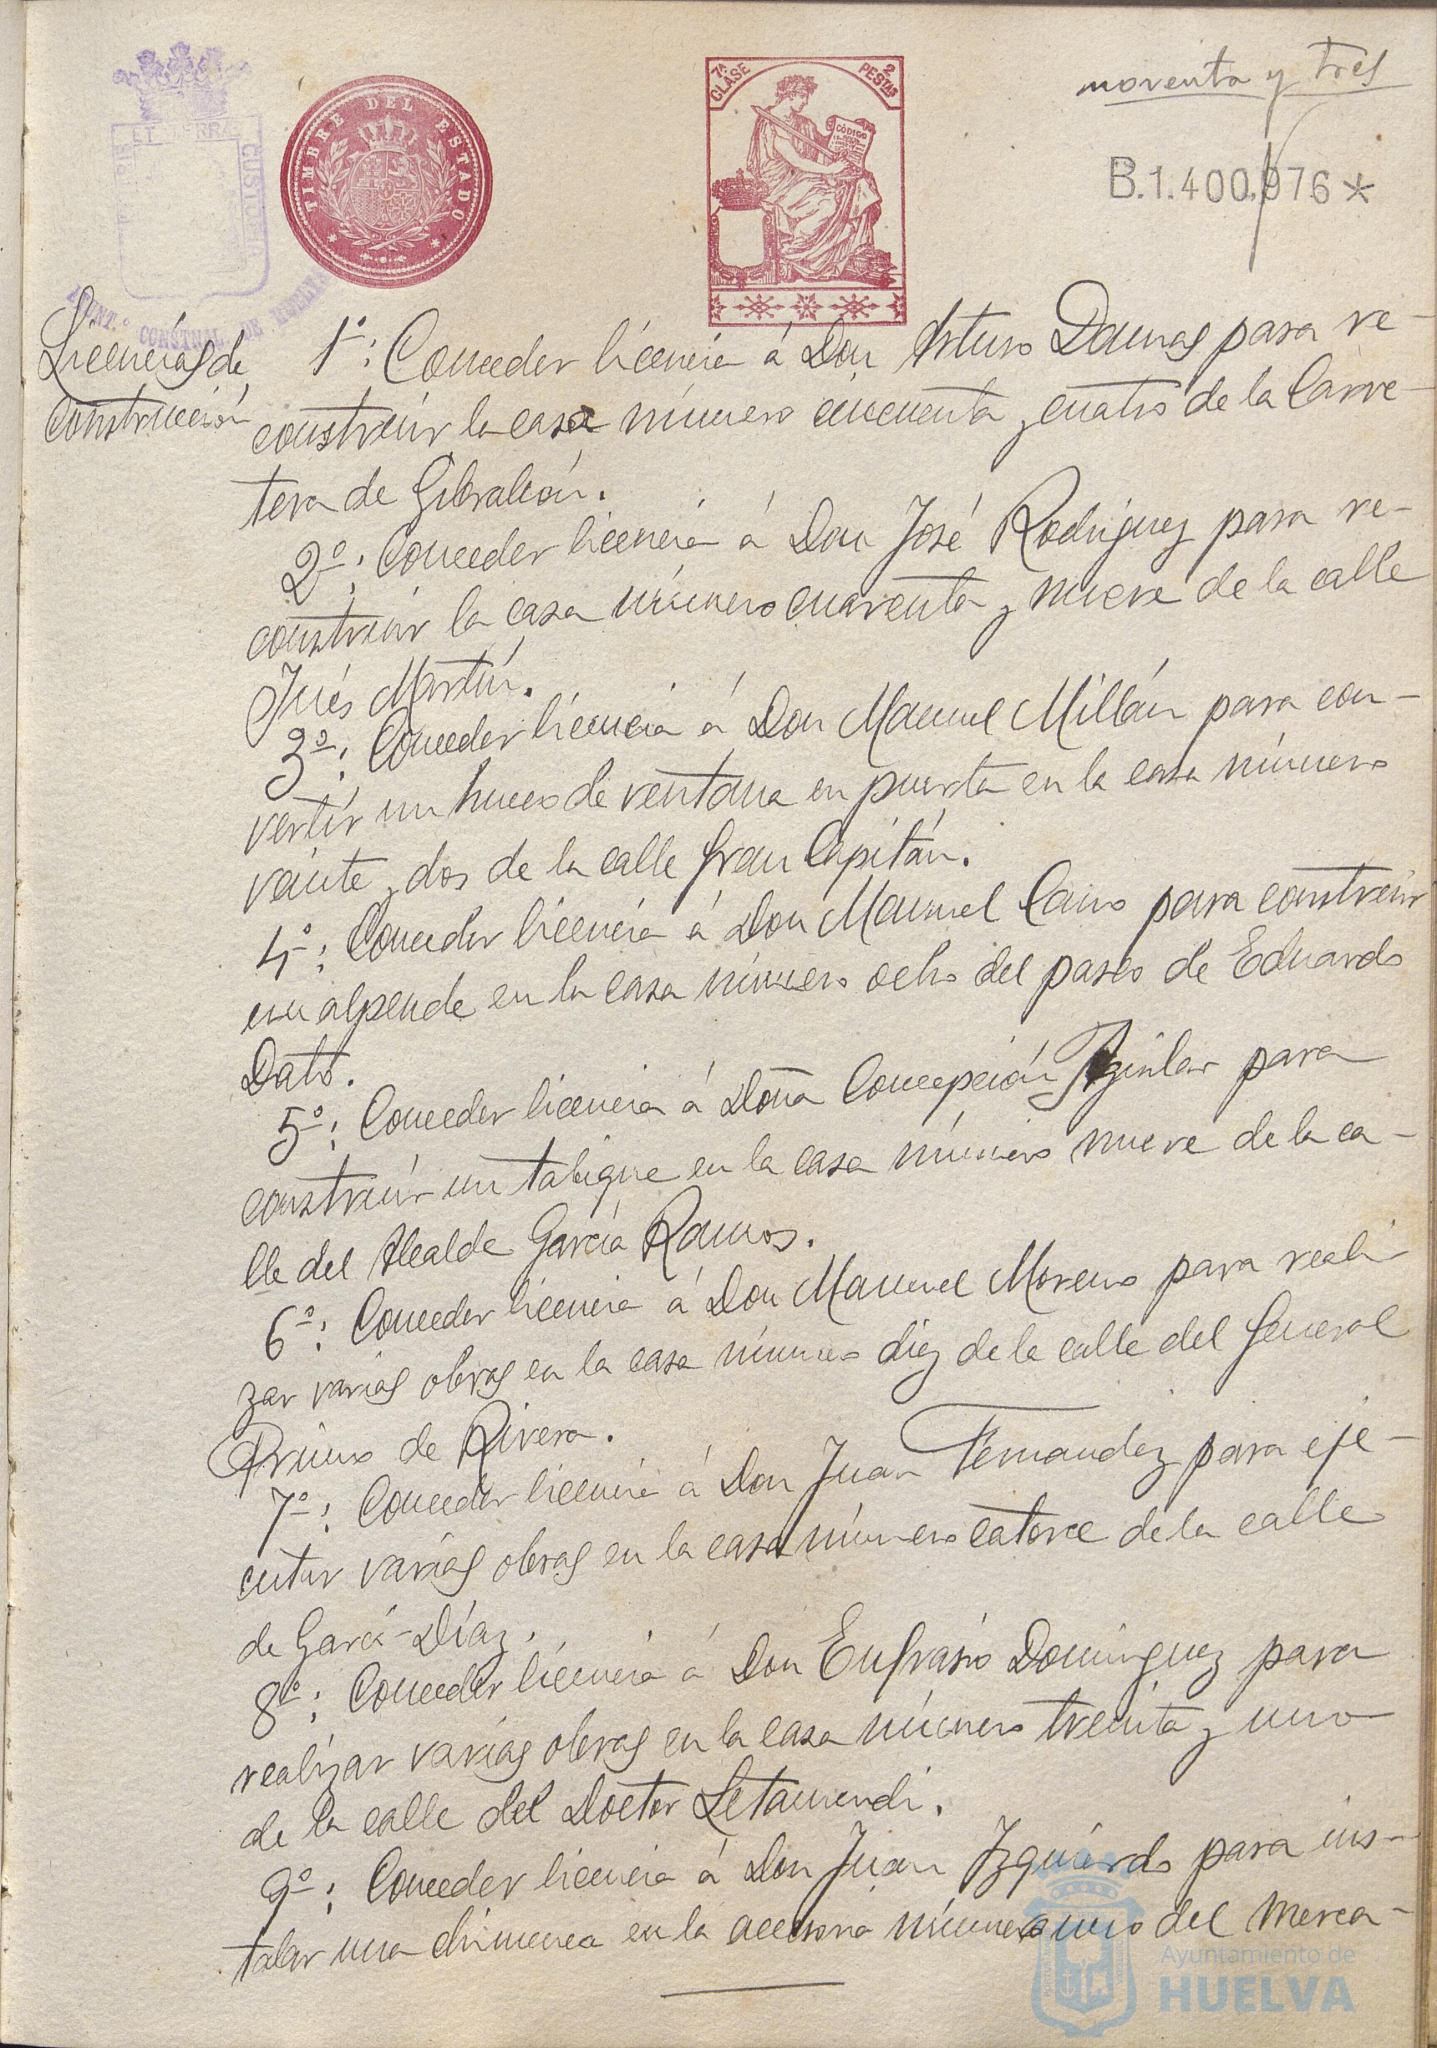 noventa y tres
7ª CLASE
2 PESTAS
CÓDIGO
TIMBRE DEL ESTADO
ET TERRÆ CUSTODIA
AYUNT.º CONSTNAL. DE HUELVA
B.1.400.976*
Licencias de
construcción
1º: Conceder licencia á Don Arturo Damas para re-
construir la casa número cincuenta y cuatro de la Carre-
tera de Gibraleón.
2º: Conceder licencia á Don José Rodriguez para re-
construir la casa número cuarenta y nueve de la calle
Inés Martín.
3º: Conceder licencia á Don Manuel Millán para con-
vertir un hueco de ventana en puerta en la casa número
veinte y dos de la calle Gran Capitán.
4º: Conceder licencia á Don Manuel Cano para construir
un alpende en la casa número ocho del paseo de Eduardo
Dato.
5º: Conceder licencia á Doña Concepción Aguilar para
construir un tabique en la casa número nueve de la ca-
lle del Alcalde García Ramos.
6º: Conceder licencia á Don Manuel Moreno para reali-
zar varias obras en la casa número diez de la calle del General
Primo de Rivera.
7º: Conceder licencia á Don Juan Fernandez para eje-
cutar varias obras en la casa número catorce de la calle
de Garci-Díaz.
8º: Conceder licencia á Don Eufrasio Dominguez para
realizar varias obras en la casa número treinta y uno
de la calle del Doctor Letamendi.
9º: Conceder licencia á Don Juan Izquierdo para ins-
talar una chimenea en la accesoria número uno del Merca-
Ayuntamiento de
HUELVA